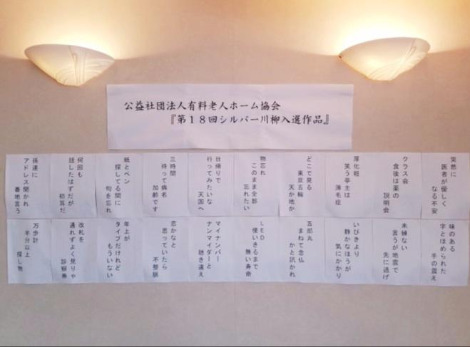 公益社団法人有料老人ホーム協会
『第18回シルバー川柳入選作品』
突然に
医者が優しく
なる不安
クラス会
食後は薬の
説明会
厚化粧
笑う亭主は
薄毛症
どこで見る
東京五輪
天か地か
物忘れ
このまま全部
忘れたい
日帰りで
行ってみたいな
天国へ
三時間
待って病名
加齢です
紙とペン
探してる間に
句を忘れ
何回も
話したはずだが
初耳だ
孫達に
アドレス聞かれ
番地言う
味のある
字とほめられた
手の震え
未練ない
言うが地震で
先に逃げ
いびきより
静かなほうが
気にかかり
五郎丸
まねて念仏
かと訊かれ
LED
使いきるまで
無い寿命
マイナンバー
ナンマイダーと
聞き違え
恋かなと
思っていたら
不整脈
年上が
タイプだけれど
もういない
改札を
通れずよく見りゃ
診察券
万歩計
半分以上
探し物